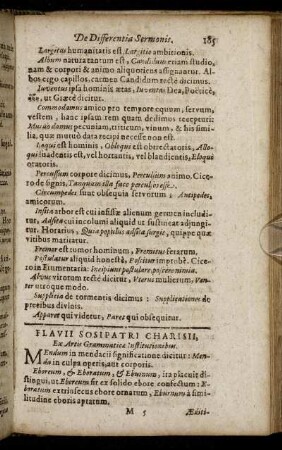 De Differentia Sermonis. 185
Largitus humanitatis est. Largitio ambitionis.
Album natura tantum est, Candidum etiam studio,
nam & corpori & animo aliquotiens assignatur. Al-
bos ergo capillos, carmen Candidum recte dicimus.
Iuventus ipsa hominis ætas, Iuventas Dea, Poëticè,
ut Græcè dicitur.
Commodamus amico pro tempore equum, servum,
vestem, hanc ipsam rem quam dedimus recepturi:
Mutuò damus pecuniam, triticum, vinum, & his simi-
lia, quæ mutuò data recipi necesse non est.
Loqui est hominis, Obloqui est obtrectatoris, Allo-
qui suadentis est, vel hortantis, vel blandientis, Eloqui
oratoris.
Percussum corpore dicimus, Perculsum animo. Cice-
ro de signis. Tanquam illa face perculsi esse.
Circumpedes sunt obsequia servorum: Antipedes,
amicorum.
Insita arbor est cui inscissæ alienum germen inducitur,
Adsita cui incolumi aliquid ut sustineat adjungi-
tur. Horatius, Quia populus adsita surgit, quippe quæ
vitibus maritatur.
Fremor est rumor hominum, Fremitus ferarum.
Postulatur aliquid honestè, Poscitur improbè. Cice-
ro in Frumentaria: Incipiunt postulare, poscere minia.
Alvus virorum tectè dicitur, Uterus mulierum. Ven-
ter utroque modo.
Supplicia de tormentis dicimus: Supplicationes de
precibus divinis.
Apparet qui videtur, Paret qui obsequitur.
FLAVII SOSIPATRI CHARISII,
Ex Artis Grammaticæ Institutionibus.
Mendum in mendacii significatione dicitur: Men-
da in culpa operis, aut corporis.
Eboreum, & Eboratum, & Eburnum, ita placuit di-
stingui, ut Eboreum sit ex solido ebore confectum: E-
boratum extrinsecus ebore ornatum, Eburnum à simi-
litudine eboris aptatum.
M 5 Æditi-